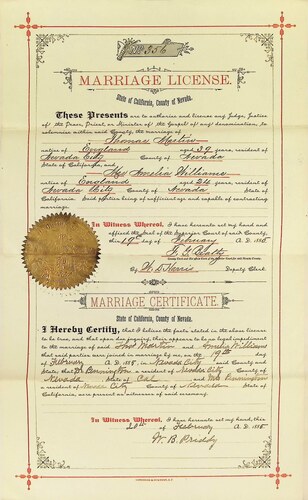 No 356
MARRIAGE LICENSE.
State of California, County of Nevada.
These Presents are to authorize and license any Judge, Justice
of the Peace, Priest, or Minister of the Gospel of any denomination, to
solemnize within said County, the marriage of
Thomas
native of England aged 39 years, resident of
Nevada City County of Nevada
State of California, and
Mrs Amelia Williams
native of England aged 24 years, resident of
Nevada City County of Nevada
State of California. Said parties being of sufficient age and capable of contracting
marriage.
In Witness Whereof, I have hereunto set my hand and
affixed the Seal of the Superior Court of said County,
this 19th day of February A. D. 1885
By W. D. Harris Deputy Clerk
MARRIAGE CERTIFICATE.
State of California, County of Nevada.
I Hereby Certify, that I believe the facts stated in the above license
to be true, and that upon due inquiry, there appears to be no legal impediment
to the marriage of said Thos and Amelia Williams
that said parties were joined in marriage by me, on the 19th day
of February A. D. 1885, in Nevada City County and
State; that resident of Nevada City County of
Nevada State of Cal and Mrs
a resident of Nevada City County of State of
California, are present as witnesses of said ceremony.
In Witness Whereof, I have hereunto set my hand, this
20th of February A. D. 1885
W. B. Priddy